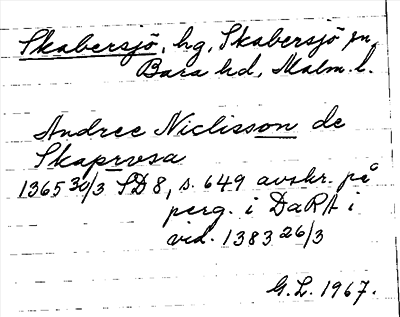 Skabersjö, hg, Skabersjö sn,
Bara hd, Malm. l.
Andree Niclisson de
Skaprvsa
1365 30/3 SD 8, s. 649 avskr. på
perg. i DaRA i
vid. 1383 26/3
G.L. 1967.